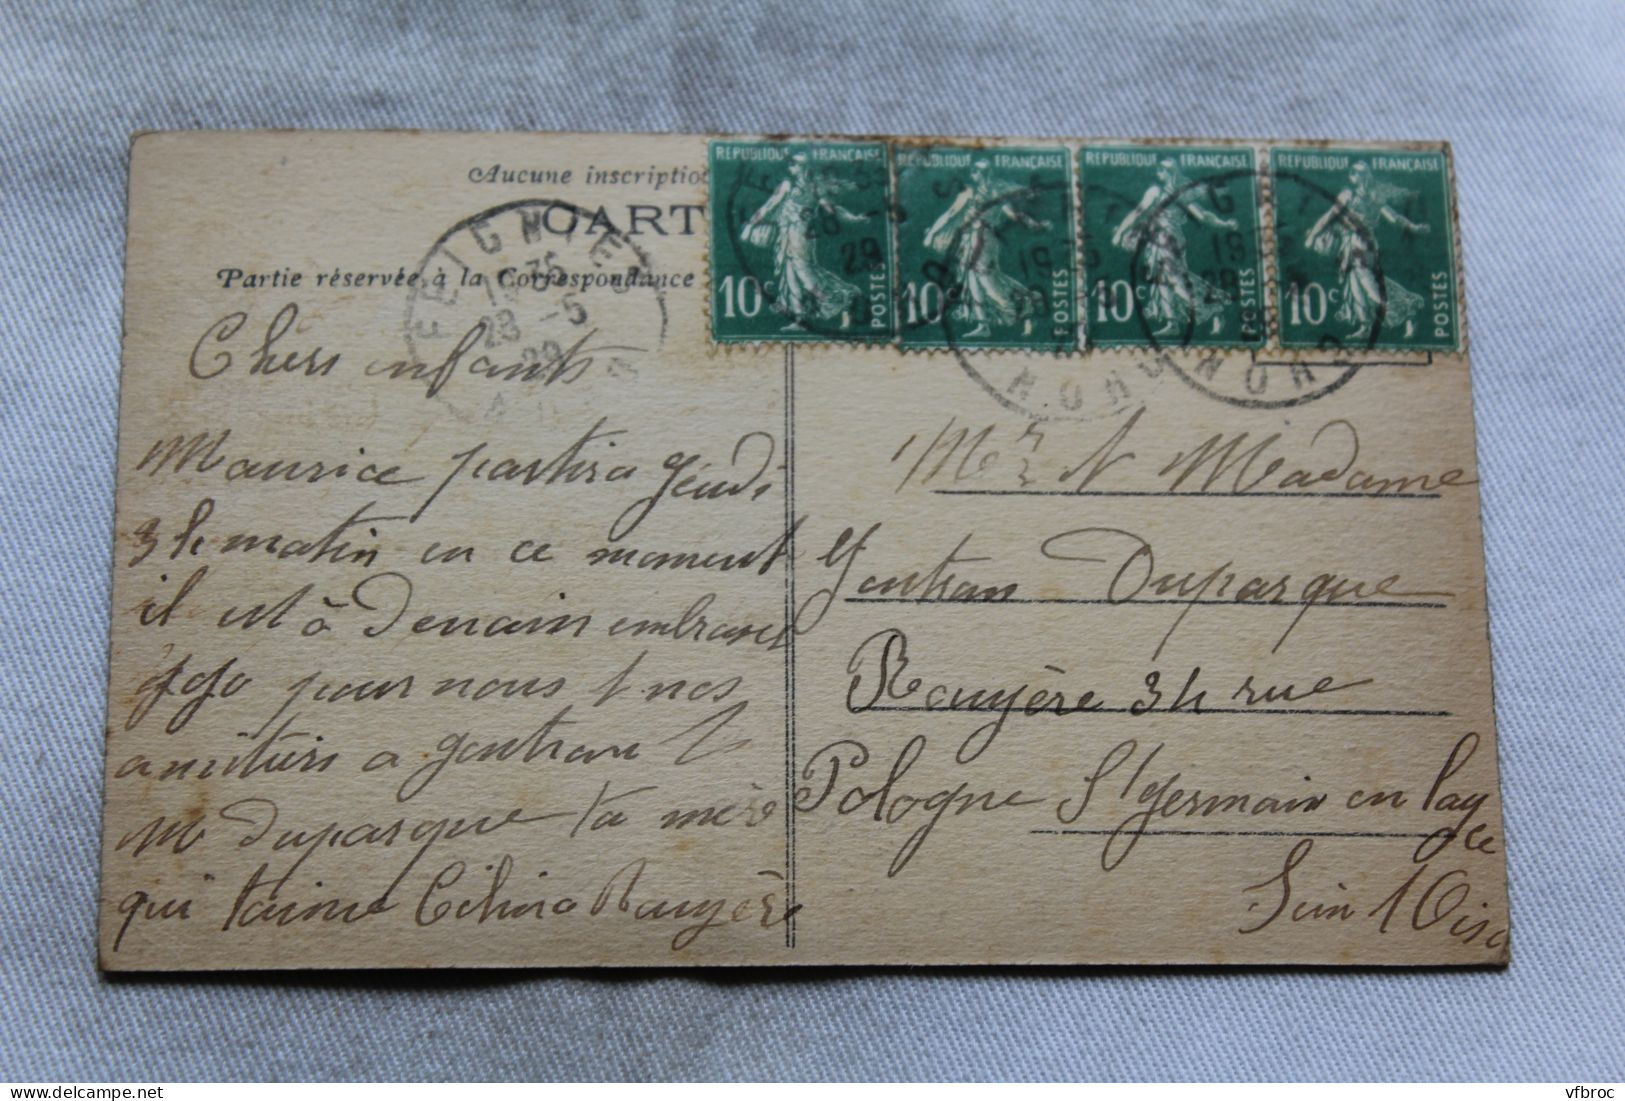 Aucune inscription
CART
Partie réservée à la Correspondance
RÉPUBLIQUE FRANÇAISE
10c
POSTES
RÉPUBLIQUE FRANÇAISE
10c
POSTES
RÉPUBLIQUE FRANÇAISE
10c
POSTES
RÉPUBLIQUE FRANÇAISE
10c
POSTES
FEIGNIES
28 -5
29
NORD
Chers enfants
Maurice partira Jeudi
3 h matin en ce moment
il est à Denain embrasser
gogo pour nous & nos
amitiers a gontran &
M Duparque ta mère
qui taime Rauyère
Mr & Madame
Gontran Duparque
Rauyère 34 rue
Pologne St germain en laye
Sein & Oise
vfbroc